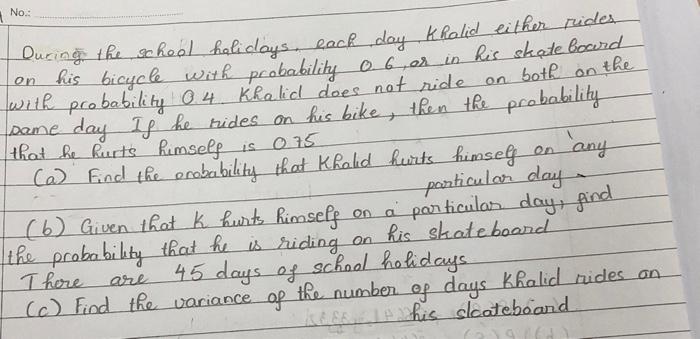 No.:
During the school holidays, each day Khalid either rides
on his bicycle with probability 0.6, or in his skate board
with probability 0.4. Khalid does not ride on both on the
same day If he rides on his bike, then the probability
that he hurts himself is 0.75
(a) Find the probability that Khalid hurts himself on any
particular day.
(b) Given that K hurts himself on a particular day, find
the probability that he is riding on his skateboard
There are 45 days of school holidays
(c) Find the variance of the number of days Khalid rides on
his skateboard